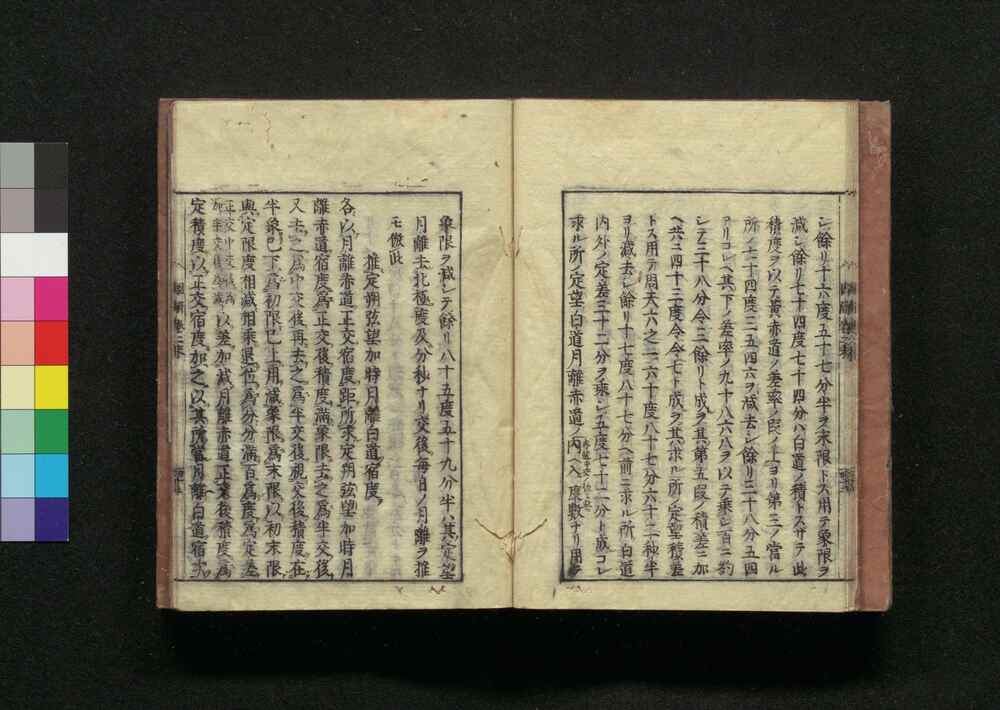 シ餘リ十六度五十七分半ヲ末限ト乄用テ象限ヲ
減シ餘リ七十四度七十四分ハ白道ノ積トスサテ此
積度ヲ以テ黄赤道ノ差率ノ段ノ上ヨリ第三ノ當ル
所ノ二十四度三五四六ヲ減去シ餘リ二十八分五四
アリコレヘ其下ノ差率ノ九十八六八ヲ以テ乗シ百ニ約
シテ二十八分今ニ餘リト成ヲ其第五段ノ積差ニ加
ヘ共ニ四十二度今今七ト成ヲ其ハ求ル所ノ定望積差
トス用テ周天六之一六十度八十七分六十二秒半
ヨリ減去シ餘リ十七度八十七分ヘ前ニ求ル所白道
内外ノ定差三十二分ヲ乗シ五度七十二分ト成コレ
求ル所ノ定望白道月離赤道ノ内ヘ入度數ナリ用
象限ヲ減シテ餘リ八十五度五十九分半ハ其定望
月離去北極度及分秒ナリ交後毎日ノ月離ヲ推
モ倣此
推定朔弦望加時月離白道宿度
各以月離赤道正交宿度距所求定朔弦望加時月
離赤道宿度為正交後積度滿象限去之為半交後
又去之為中交後再去之為半交後視交後積度在
半象已下為初限已上用減象限為末限以初末限
與定限度相減相乗退位為分分滿百為度為定差
正交中交後為加半交後為減以差加減月離赤道正交後積度為
定積度以正交宿度加之以其所當月離白道宿